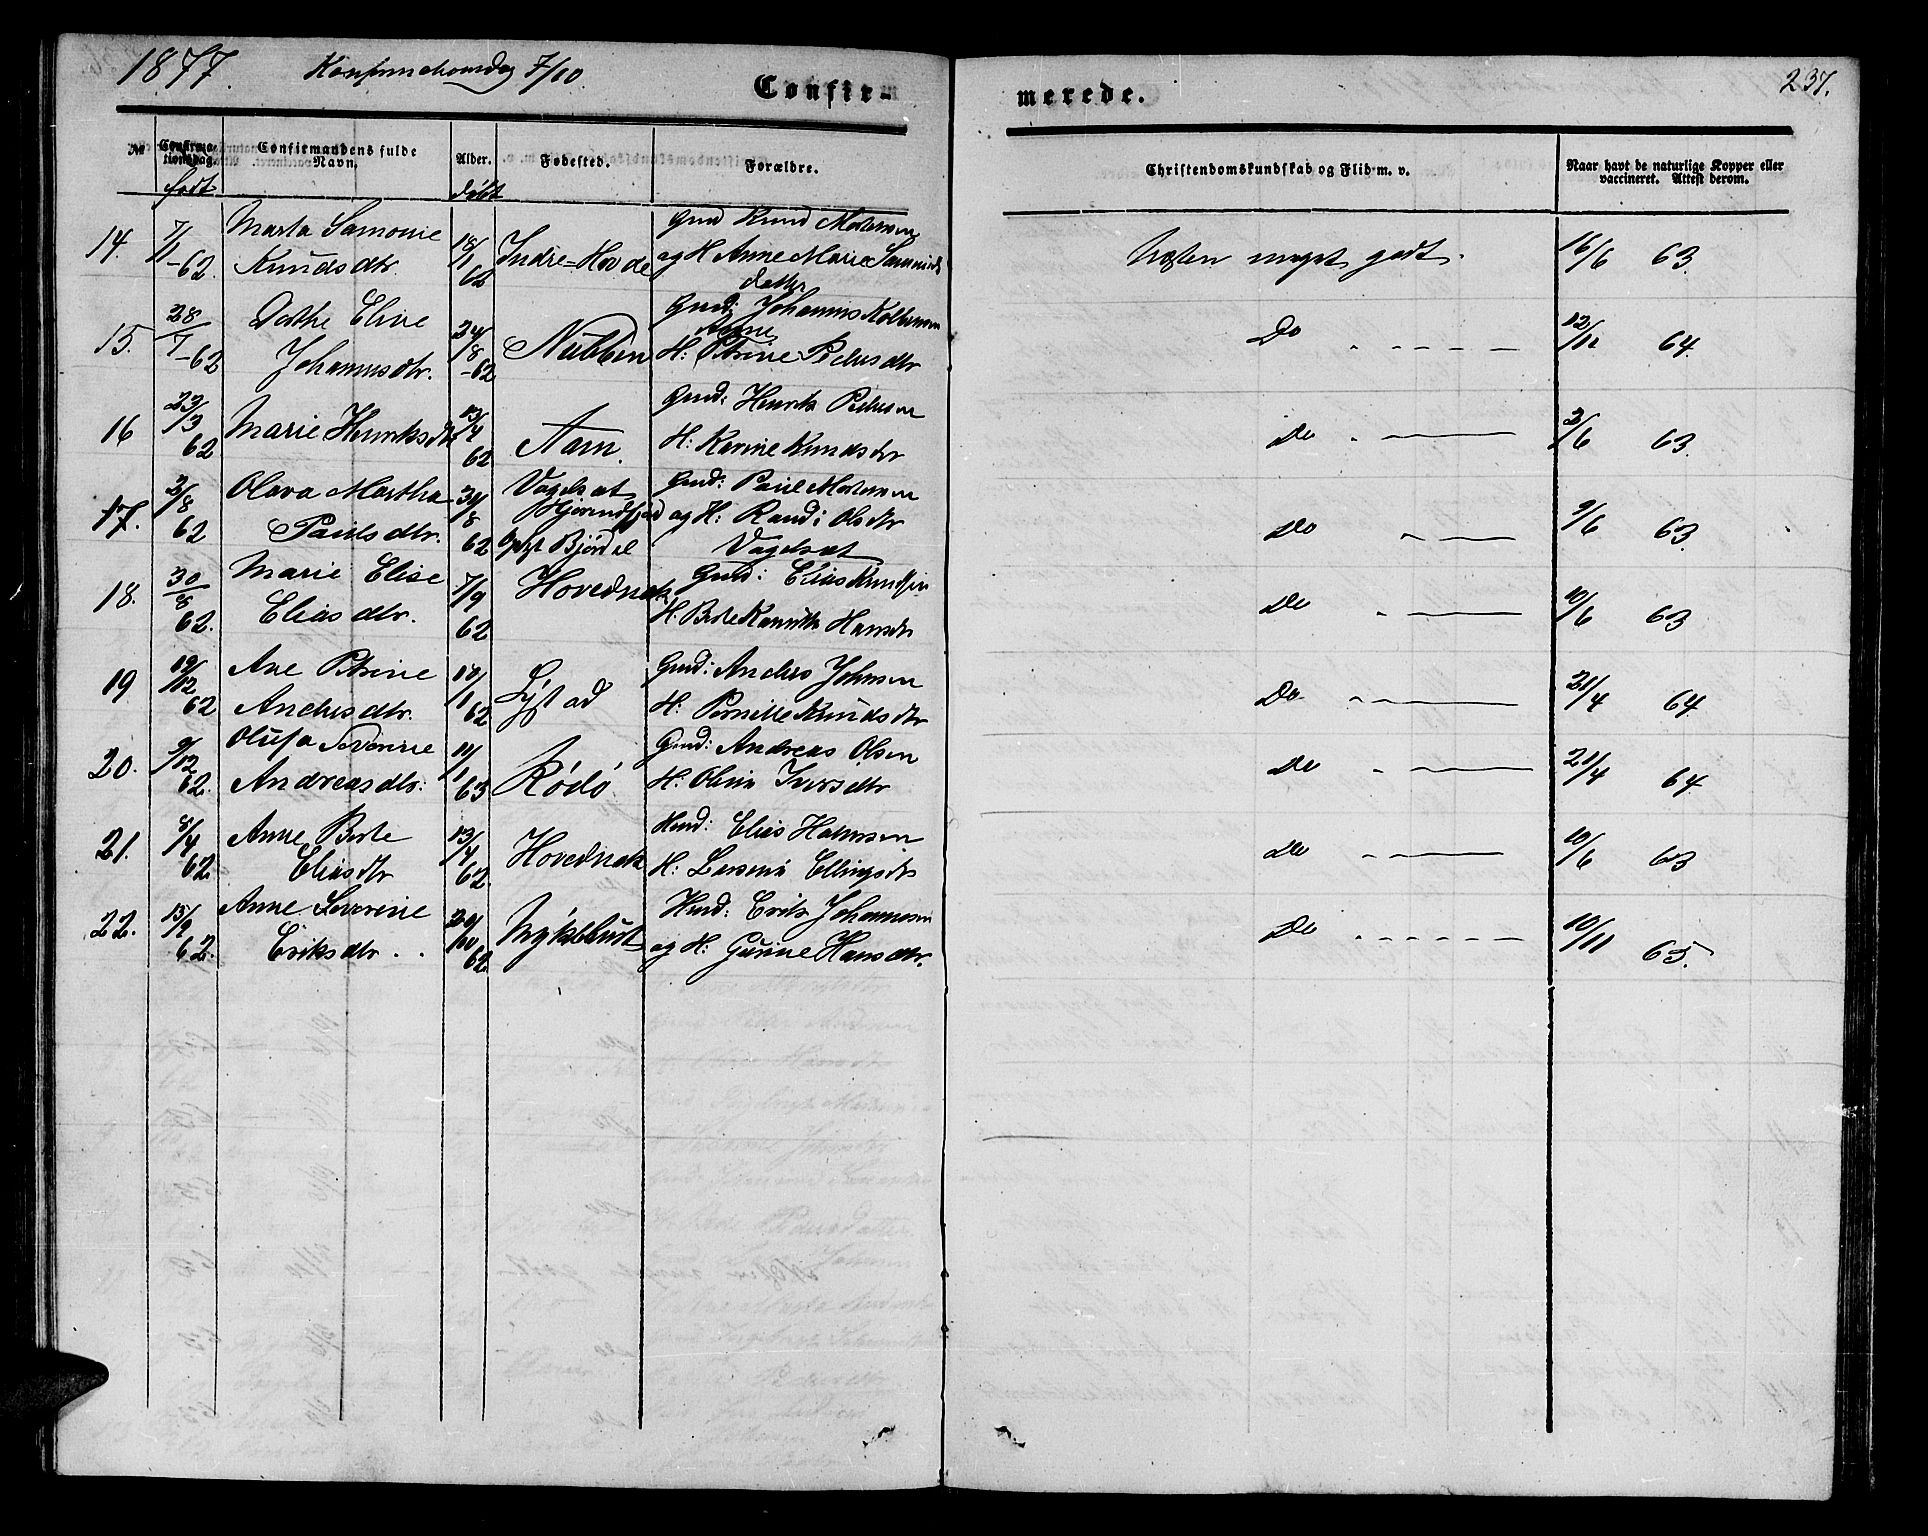 1877. Konfirmationsdag 7/10.
Confirmerede.
237.
No
Confirmationsdag.
født
Confirmandens fulde Navn.
Alder.
døbt
Fødested.
Forældre.
Christendomskundskab og Flid m. v.
Naar havt de naturlige Kopper eller vaccineret. Attest derom.
14. 7/1 Marta Samonie 18/1 Indre-Hovde Gmd Knud Mortensen Næsten meget godt. 16/6 63.
-62. Knudsdtr. 62 og H Anne Marie
datter
15. 28/7 Dorthe Eline 24/8 Nubben Gmd: Johannes Do 12/11 64.
-62 Johannesdtr. -62 Anne
H: Petrine Pedersdtr
16 23/3 Marie Henriksdtr 13/4 Aam. Gmd: Henrik Pedersen Do 3/6 63.
62 62 H: Karine Knudsdtr
17. 3/8 Olava Martha 31/8 Vagelsæt Gmd: Paul Mortensen Do 9/6 63.
62 Paulsdtr. 62 Hjørendfjord og H: Randi Olsdtr
Opf Bjørdal Vagelsæt
18. 30/8 Marie Elise 7/9 Hovednak Gmd: Elias Knudsen Do 10/6 63
62. Eliasdtr. 62 H. Berte Hansdtr
19 19/12 Ane Petrine 10/1 Lystad Gmd: Anders Johnsen Do 21/4 64.
62 Andersdtr. 62 H: Pernille Knudsdtr
20. 9/12 Olufa Severine 11/1 Rødø Gmd: Andreas Olsen Do 21/4 64.
62. Andreasdtr: 63 H: Oline Iversdtr
21. 8/4 Anne Berte 13/4 Hovednak Hmd: Elias Do 10/6 63
62. Eliasdtr 62. H: Ellingsdtr
22. 15/9 Anne Severine 20/10 Myklebust Hmd: Erik Johannesen Do 10/11 65.
62. Eriksdtr. . 62. og H: Gurine Hansdtr.